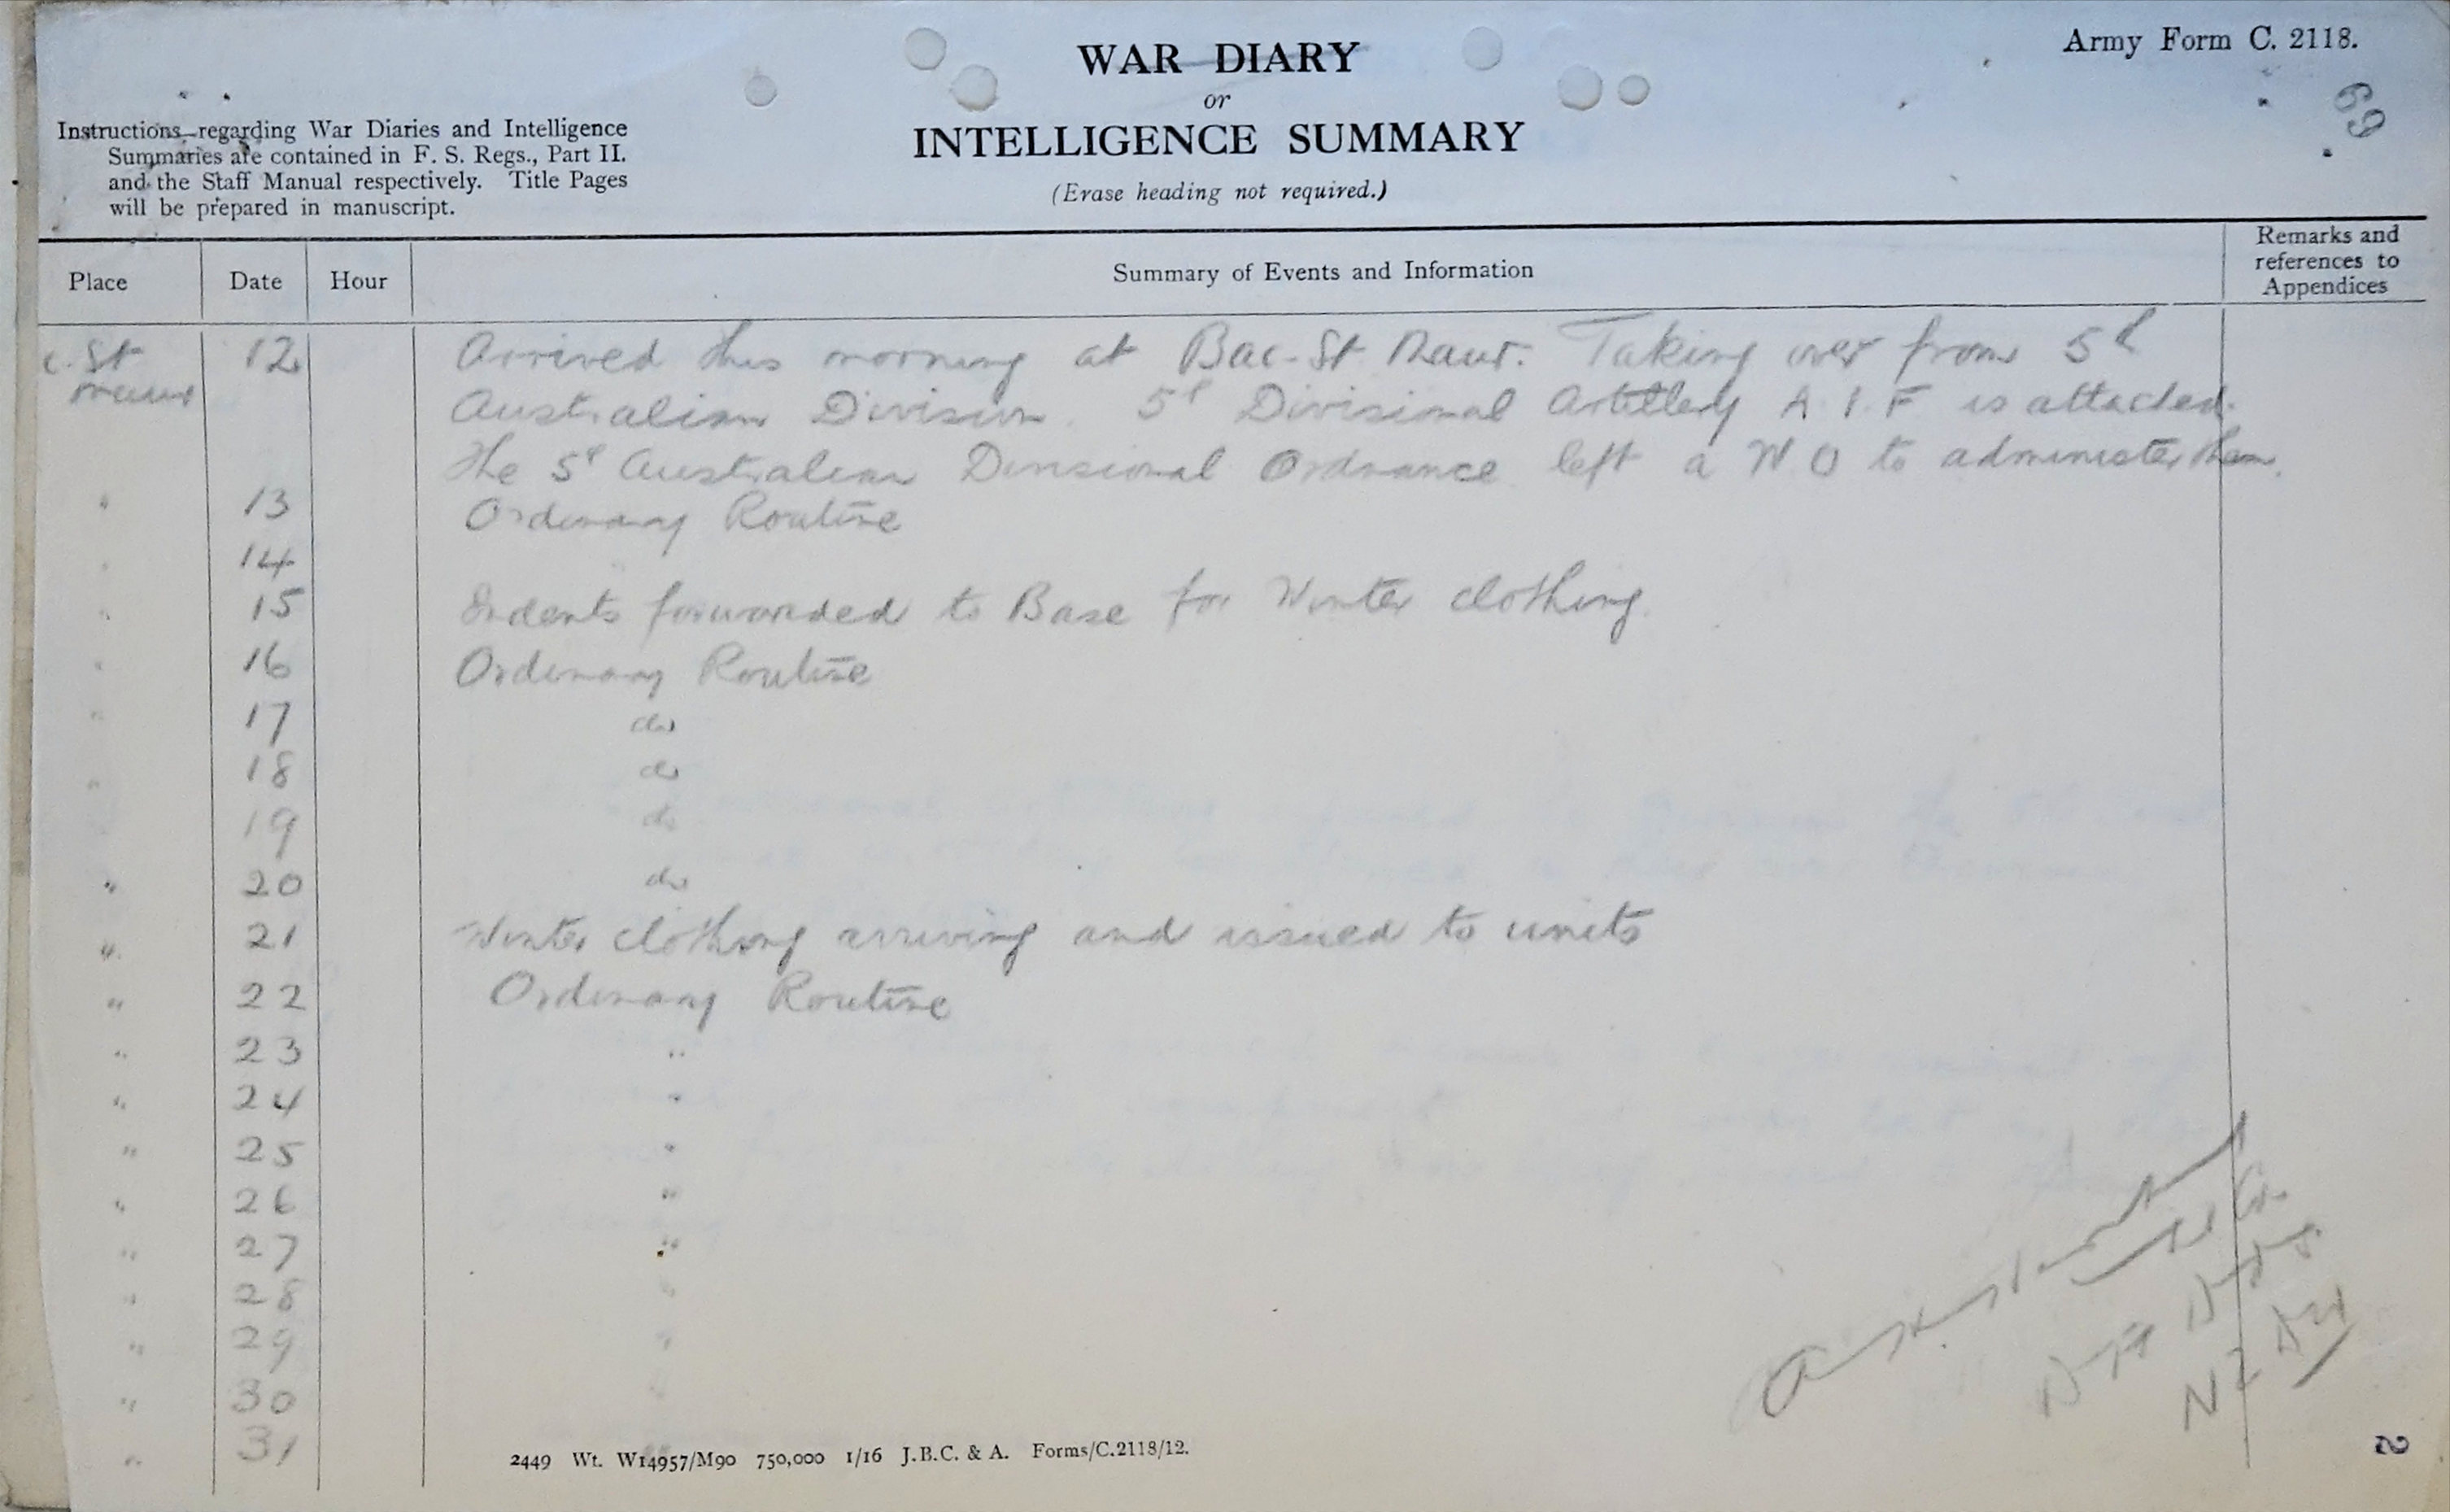 WAR DIARY
or
INTELLIGENCE SUMMARY
(Erase heading not required.)
Army Form C. 2118.
69
Instructions regarding War Diaries and Intelligence
Summaries are contained in F. S. Regs., Part II.
and the Staff Manual respectively. Title Pages
will be prepared in manuscript.
Place Date Hour Summary of Events and Information Remarks and references to Appendices
c. St 12 Arrived this morning at Bac-St Maur. Taking over from 5th
Maur Australian Division. 5th Divisional Artillery A.I.F is attached.
The 5th Australian Divisional Ordnance left a W.O to administer them.
" 13 Ordinary Routine
" 14
" 15 Indents forwarded to Base for Winter clothing.
" 16 Ordinary Routine
" 17 do
" 18 do
19 do
" 20 do
" 21 Winter clothing arriving and issued to units
" 22 Ordinary Routine
" 23 "
" 24 "
" 25 "
" 26 "
" 27 "
" 28 "
" 29 "
" 30 "
" 31
NZ Div
2449 Wt. W14957/M90 750,000 1/16 J.B.C. & A. Forms/C.2118/12.
2